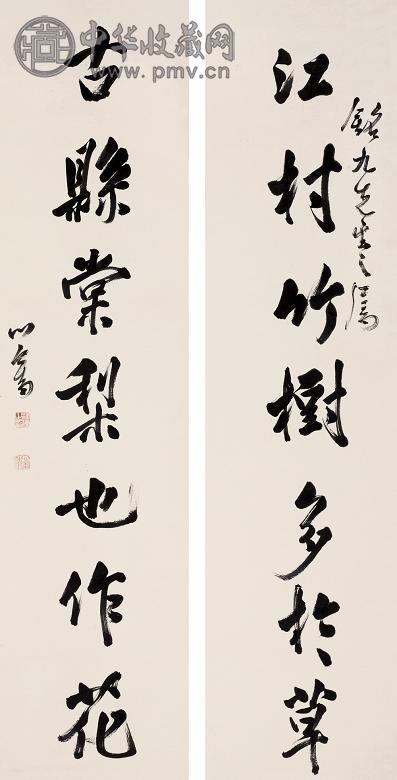 中华收藏网
www.pmv.cn
江村竹樹多於草
銘九先生之屬
古縣棠梨也作花
心畬